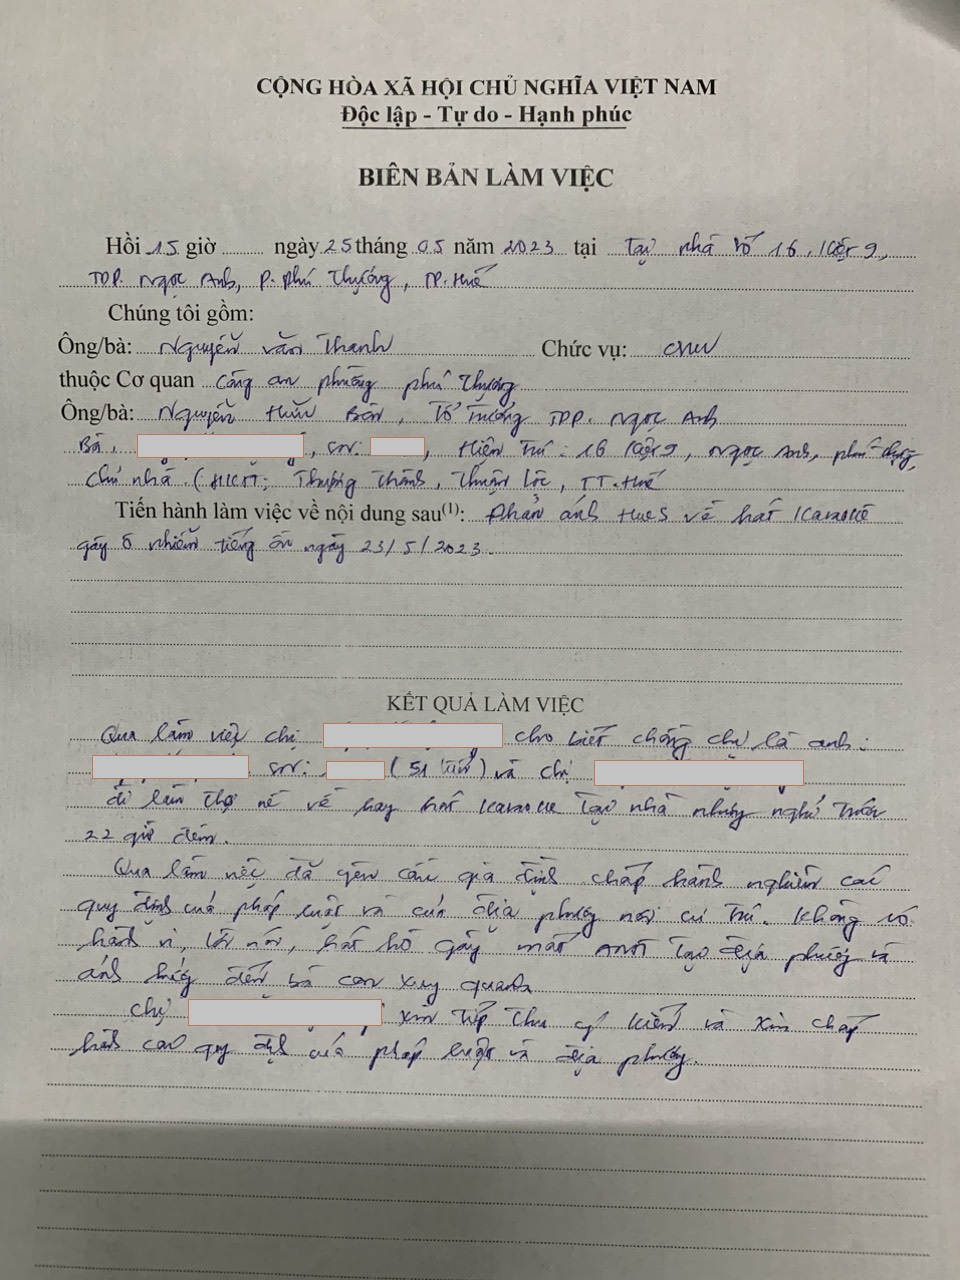 CỘNG HÒA XÃ HỘI CHỦ NGHĨA VIỆT NAM
Độc lập - Tự do - Hạnh phúc
BIÊN BẢN LÀM VIỆC
Hồi 15 giờ ........ ngày 25 tháng 05 năm 2023 tại Tại nhà số 16, Kiệt 9,
TDP. Ngọc Anh, P. Phú Thượng, TP. Huế
Chúng tôi gồm:
Ông/bà: Nguyễn Văn Thanh Chức vụ:
thuộc Cơ quan Công an phường Phú Thượng
Ông/bà: Nguyễn Hữu Bôn, Tổ Trưởng TDP. Ngọc Anh
Bà , sn: , Hiện trú: 16 Kiệt 9, Ngọc Anh, Phú Thượng,
chủ nhà. (HKTT: Thượng Thành, Thuận Lộc, TT. Huế
Tiến hành làm việc về nội dung sau(1): Phản ánh HueS về hát Karaoke
gây ô nhiễm tiếng ồn ngày 23/5/2023.
KẾT QUẢ LÀM VIỆC
Qua làm việc chị cho biết chồng chị là anh:
sn: (51 tuổi) và chị
đi làm thợ nề về hay hát Karaoke tại nhà nhưng nghỉ trước
22 giờ đêm.
Qua làm việc đã yêu cầu gia đình chấp hành nghiêm các
quy định của pháp luật và của địa phương nơi cư trú. Không có
hành vi, lời nói, hát hò gây mất ANTT tại địa phương và
ảnh hưởng đến bà con xung quanh
Chị xin tiếp thu ý kiến và xin chấp
hành các quy định của pháp luật và địa phương.